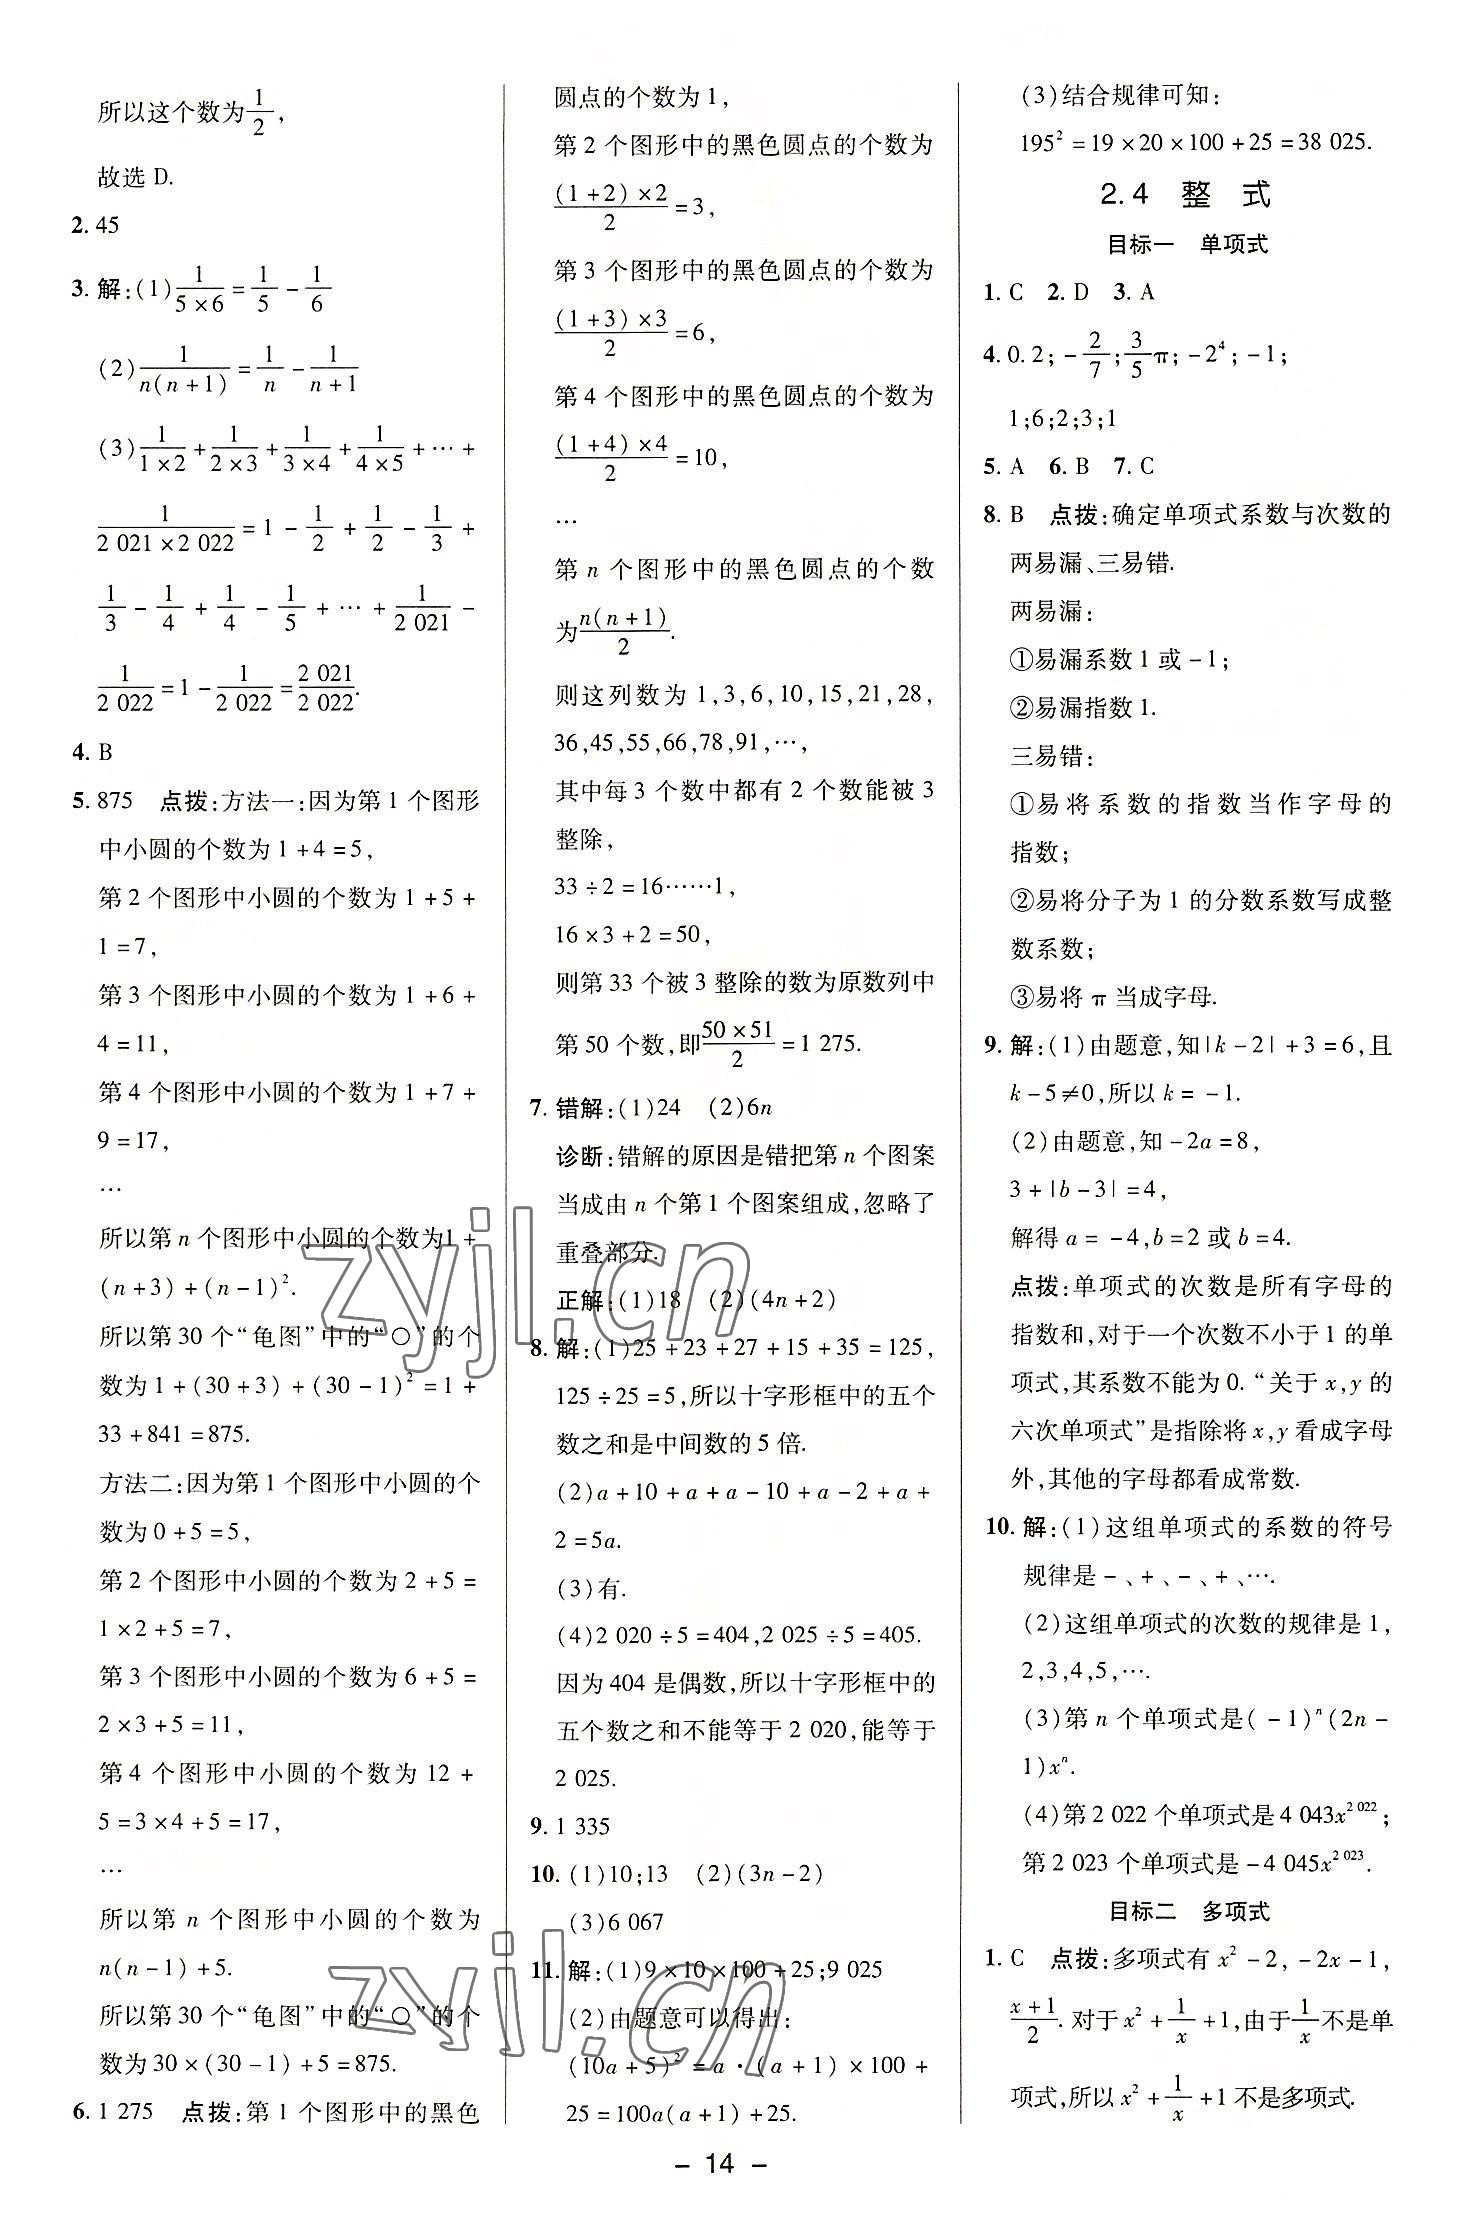 所以这个数为1/2,
故选 D.
2. 45
3. 解:(1) 1/(5×6) = 1/5 - 1/6
(2) 1/(n(n+1)) = 1/n - 1/(n+1)
(3) 1/(1×2) + 1/(2×3) + 1/(3×4) + 1/(4×5) + … +
1/(2 021×2 022) = 1 - 1/2 + 1/2 - 1/3 +
1/3 - 1/4 + 1/4 - 1/5 + … + 1/2 021 -
1/2 022 = 1 - 1/2 022 = 2 021/2 022.
4. B
5. 875 点拨:方法一:因为第 1 个图形
中小圆的个数为 1+4=5,
第 2 个图形中小圆的个数为 1+5+
1=7,
第 3 个图形中小圆的个数为 1+6+
4=11,
第 4 个图形中小圆的个数为 1+7+
9=17,
…
所以第 n 个图形中小圆的个数为1+
(n+3)+(n-1)².
所以第 30 个“龟图”中的“○”的个
数为 1+(30+3)+(30-1)²=1+
33+841=875.
方法二:因为第 1 个图形中小圆的个
数为 0+5=5,
第 2 个图形中小圆的个数为 2+5=
1×2+5=7,
第 3 个图形中小圆的个数为 6+5=
2×3+5=11,
第 4 个图形中小圆的个数为 12+
5=3×4+5=17,
…
所以第 n 个图形中小圆的个数为
n(n-1)+5.
所以第 30 个“龟图”中的“○”的个
数为 30×(30-1)+5=875.
6. 1 275 点拨:第 1 个图形中的黑色
圆点的个数为 1,
第 2 个图形中的黑色圆点的个数为
(1+2)×2/2=3,
第 3 个图形中的黑色圆点的个数为
(1+3)×3/2=6,
第 4 个图形中的黑色圆点的个数为
(1+4)×4/2=10,
…
第 n 个图形中的黑色圆点的个数
为n(n+1)/2.
则这列数为 1,3,6,10,15,21,28,
36,45,55,66,78,91,…,
其中每 3 个数中都有 2 个数能被 3
整除,
33÷2=16……1,
16×3+2=50,
则第 33 个被 3 整除的数为原数列中
第 50 个数,即50×51/2=1 275.
7. 错解:(1)24 (2)6n
诊断:错解的原因是错把第 n 个图案
当成由 n 个第 1 个图案组成,忽略了
重叠部分.
正解:(1)18 (2)(4n+2)
8. 解:(1)25+23+27+15+35=125,
125÷25=5,所以十字形框中的五个
数之和是中间数的 5 倍.
(2)a+10+a+a-10+a-2+a+
2=5a.
(3)有.
(4)2 020÷5=404,2 025÷5=405.
因为 404 是偶数,所以十字形框中的
五个数之和不能等于 2 020,能等于
2 025.
9. 1 335
10. (1)10;13 (2)(3n-2)
(3)6 067
11. 解:(1)9×10×100+25;9 025
(2)由题意可以得出:
(10a+5)²=a·(a+1)×100+
25=100a(a+1)+25.
(3)结合规律可知:
195²=19×20×100+25=38 025.
2.4 整 式
目标一 单项式
1. C 2. D 3. A
4. 0.2;-2/7;3/5π;-2⁴;-1;
1;6;2;3;1
5. A 6. B 7. C
8. B 点拨:确定单项式系数与次数的
两易漏、三易错.
两易漏:
①易漏系数 1 或-1;
②易漏指数 1.
三易错:
①易将系数的指数当作字母的
指数;
②易将分子为 1 的分数系数写成整
数系数;
③易将 π 当成字母.
9. 解:(1)由题意,知|k-2|+3=6,且
k-5≠0,所以 k=-1.
(2)由题意,知-2a=8,
3+|b-3|=4,
解得 a=-4,b=2 或 b=4.
点拨:单项式的次数是所有字母的
指数和,对于一个次数不小于 1 的单
项式,其系数不能为 0. “关于 x,y 的
六次单项式”是指除将 x,y 看成字母
外,其他的字母都看成常数.
10. 解:(1)这组单项式的系数的符号
规律是-、+、-、+、….
(2)这组单项式的次数的规律是 1,
2,3,4,5,….
(3)第 n 个单项式是(-1)ⁿ(2n-
1)xⁿ.
(4)第 2 022 个单项式是 4 043x²⁰²²;
第 2 023 个单项式是-4 045x²⁰²³.
目标二 多项式
1. C 点拨:多项式有 x²-2,-2x-1,
(x+1)/2. 对于 x²+1/x+1,由于1/x不是单
项式,所以 x²+1/x+1 不是多项式.
- 14 -
zyjl.cn
zyjl.cn